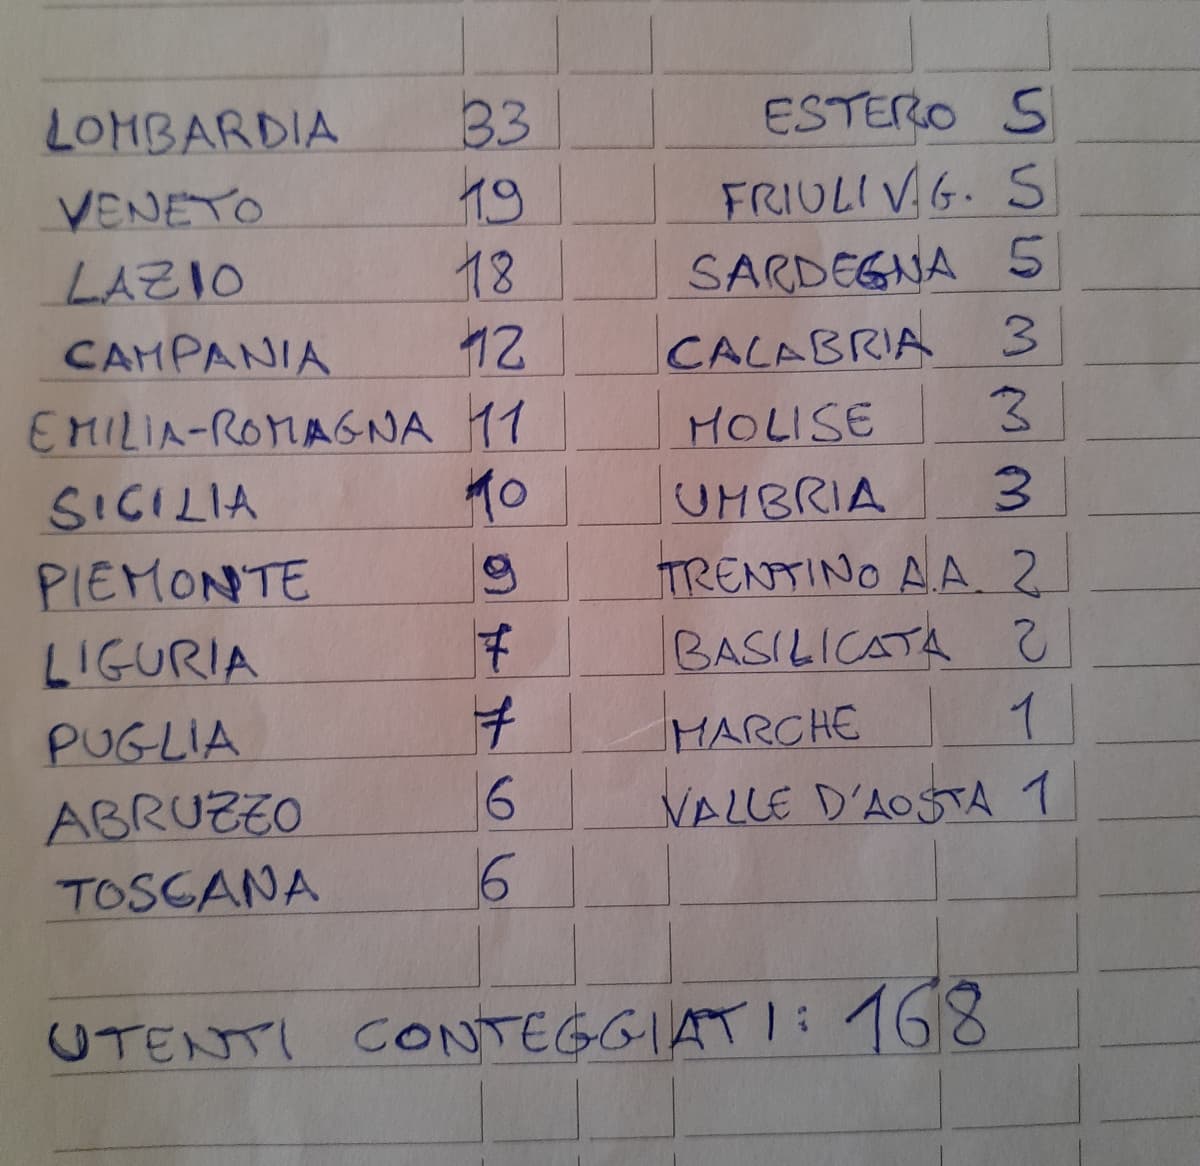 LOMBARDIA 33
VENETO 19
LAZIO 18
CAMPANIA 12
EMILIA-ROMAGNA 11
SICILIA 10
PIEMONTE 9
LIGURIA 7
PUGLIA 7
ABRUZZO 6
TOSCANA 6
ESTERO 5
FRIULI V.G. 5
SARDEGNA 5
CALABRIA 3
MOLISE 3
UMBRIA 3
TRENTINO A.A. 2
BASILICATA 2
MARCHE 1
VALLE D'AOSTA 1
UTENTI CONTEGGIATI: 168